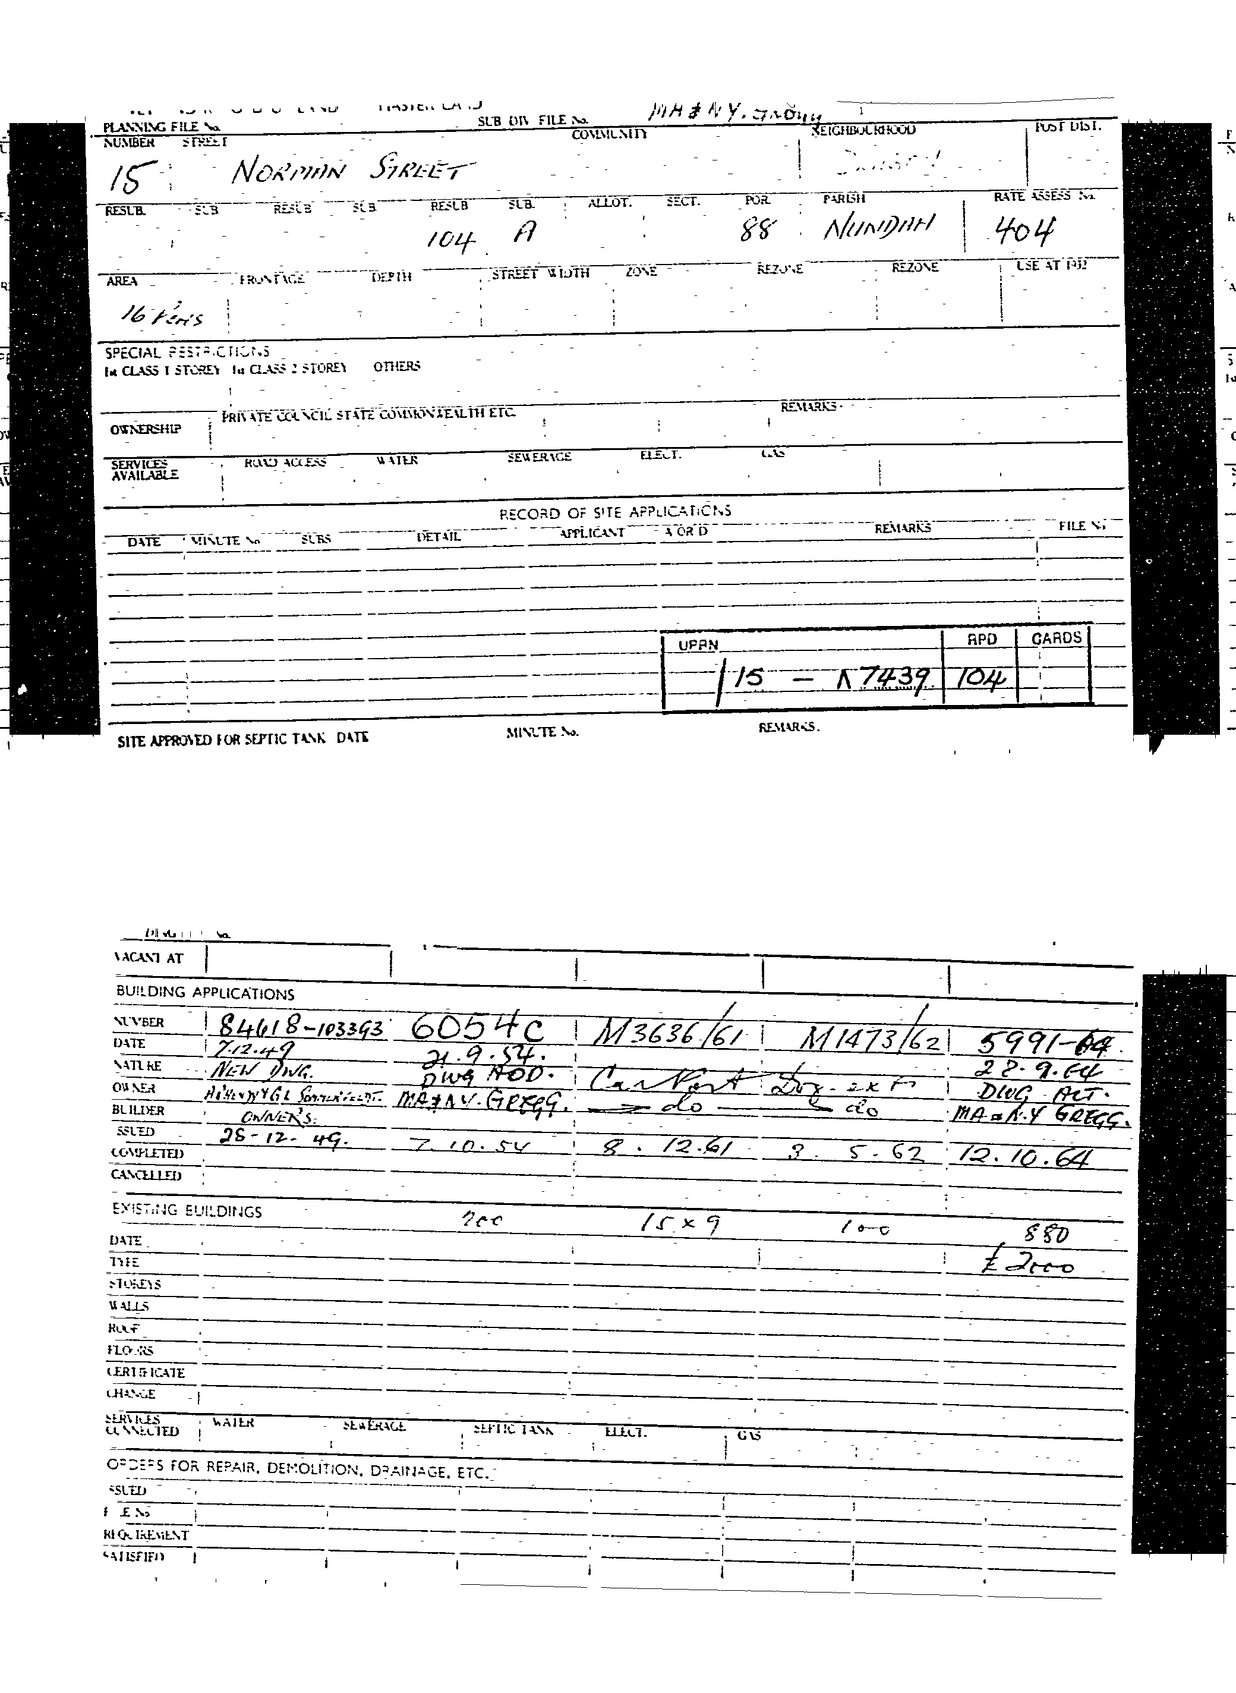 PLANNING FILE No. SUB DIV FILE No. MA & NY.
NUMBER STREET COMMUNITY NEIGHBOURHOOD POST DIST.
15 NORMAN STREET
RESUB. SUB RESUB SUB RESUB SUB. ALLOT. SECT. POR. PARISH RATE ASSESS No.
104 A 88 NUNDAH 404
AREA FRONTAGE DEPTH STREET WIDTH ZONE REZONE REZONE USE AT 1952
16 Pers
SPECIAL RESTRICTIONS
1st CLASS 1 STOREY 1st CLASS 2 STOREY OTHERS
PRIVATE COUNCIL STATE COMMONWEALTH ETC. REMARKS
OWNERSHIP
SERVICES AVAILABLE ROAD ACCESS WATER SEWERAGE ELECT. GAS
RECORD OF SITE APPLICATIONS
DATE MINUTE No SUBS DETAIL APPLICANT A OR D REMARKS FILE No
UPRN RPD CARDS
15 — 7439 104
SITE APPROVED FOR SEPTIC TANK DATE MINUTE No. REMARKS.
VACANT AT
BUILDING APPLICATIONS
NUMBER 84618-103393 6054C M3636/61 M1473/62 5991-64
DATE 7.12.49 21.9.54. 28.9.64
NATURE NEW DWG. DWG ADD. Car Port DWG ALT.
OWNER MA & N.V. GREGG. do do MA & N.Y GREGG.
BUILDER OWNERS.
ISSUED 28-12-49. 7.10.54 8.12.61 3.5.62 12.10.64
COMPLETED
CANCELLED
EXISTING BUILDINGS 200 15 x 9 100 880
DATE
TYPE £2000
STOREYS
WALLS
ROOF
FLOORS
CERTIFICATE
CHANGE
SERVICES CONNECTED WATER SEWERAGE SEPTIC TANK ELECT. GAS
ORDERS FOR REPAIR, DEMOLITION, DRAINAGE, ETC.
ISSUED
FILE No
REQUIREMENT
SATISFIED